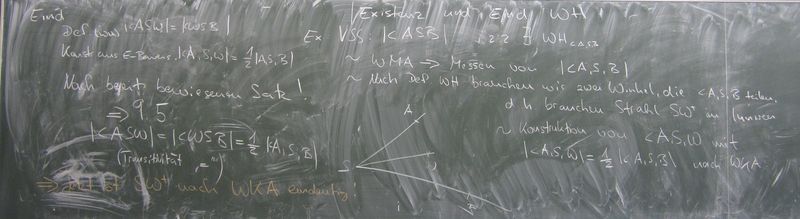 Eind
Def von |<ASW|=|<WSB|
Konstr aus E-Beweis |<A,S,W|=½|<A,S,B|
Nach bereits bewiesenem Satz!
=> 9.5
|<ASW|=|<WSB|=½|<A,S,B|
(Transitivität "=")
=> SW+ nach WKA eindeutig!
Existenz und Eind WH
Ex VSS: |<ASB| z.z.: ∃ WH <ASB
~ WMA => Messen von |<A,S,B|
~ Nach Def WH brauchen wir zwei Winkel, die <A,S,B teilen,
d h brauchen Strahl SW+ im Inneren
~ Konstruktion von <A,S,W mit
|<A,S,W|=½|<A,S,B| nach WKA
A
S
W
B